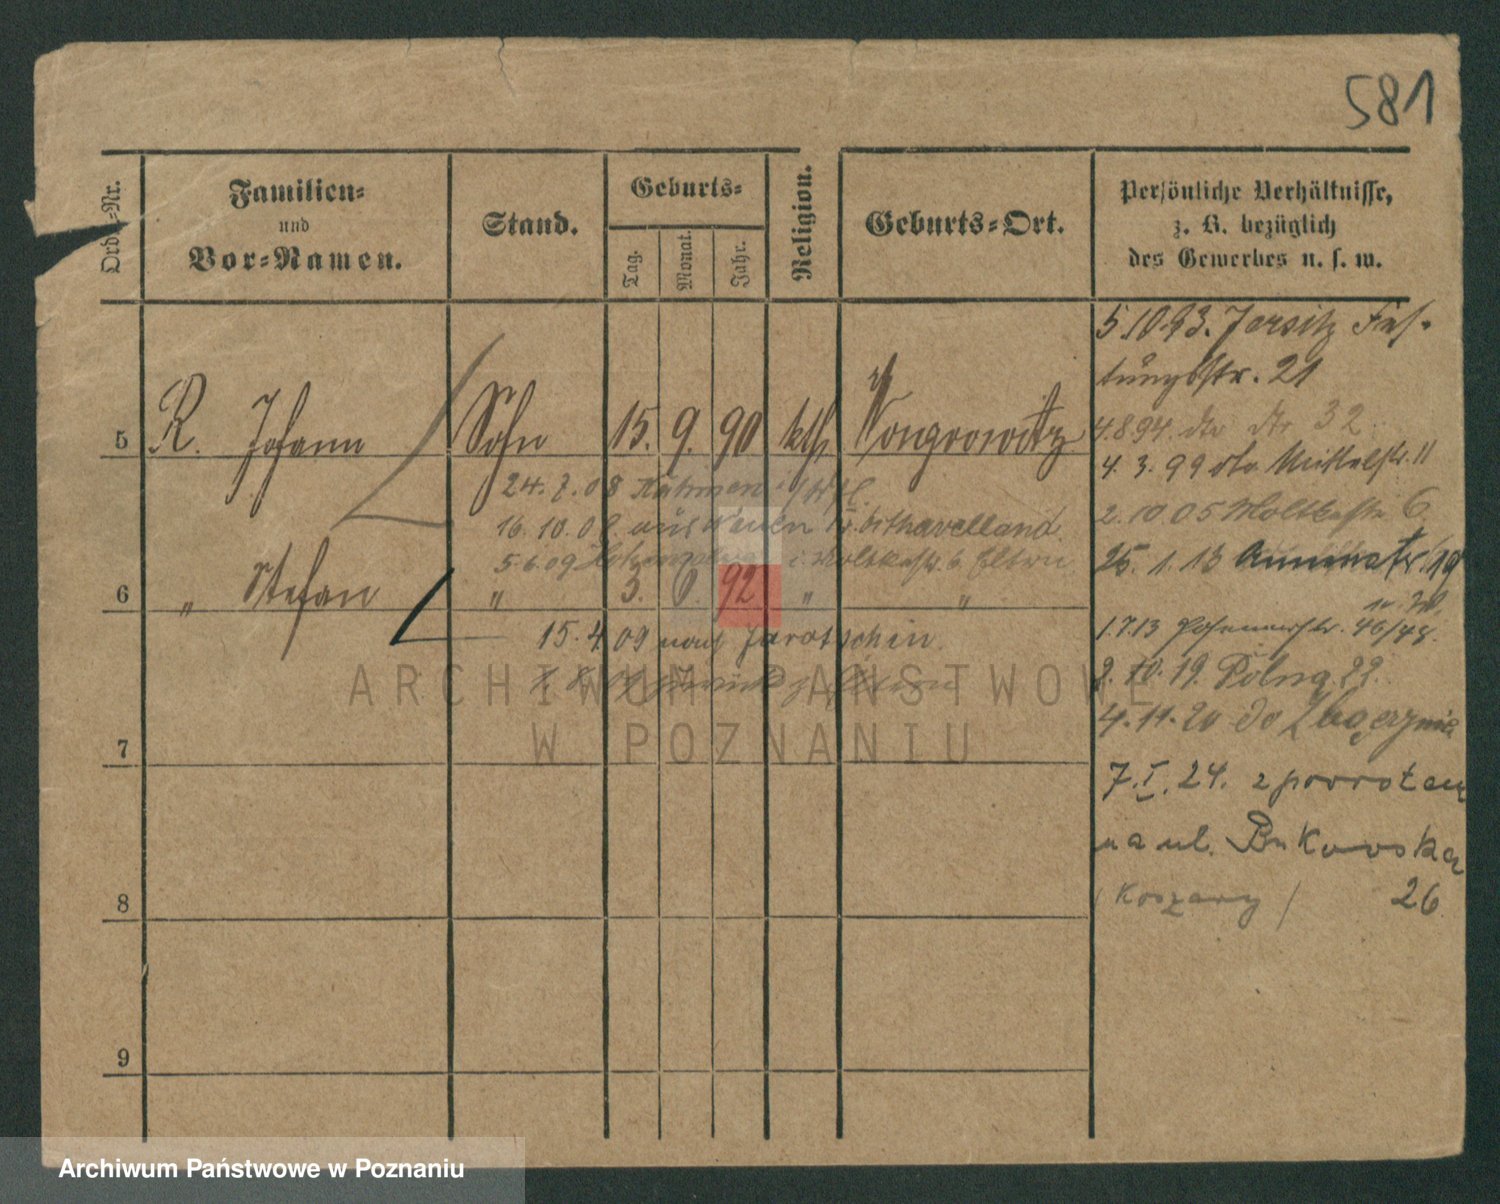 581
Ord.-Nr.
Familien-
und
Vor-Namen.
Stand.
Geburts-
Tag.
Monat.
Jahr.
Religion.
Geburts-Ort.
Persönliche Verhältnisse,
z. B. bezüglich
des Gewerbes u. s. w.
5.10.93. Jersitz Fes-
tungsstr. 21
5 R. Johann Sohn 15. 9. 90 kth Wongrowitz
4.8.94. dto Nr 32
4.3.99 dto. Mittelstr. 11
24.7.08
2.10.05 Moltkestr 6
16.10.08. aus Osthavelland.
5.6.09 i. Moltkestr. 6 Eltern
25.1.13 19
6 " Stefan " 3. 92 " "
1.7.13 Posenerstr. 46/48.
15.4.09 nach Jarotschin.
2.10.19. Polna 22.
4.11.20 do Zbąszynia
7
7.I.24. z powrotem
na ul. Bukowska
8
/ Koszary / 26
9
ARCHIWUM PAŃSTWOWE
W POZNANIU
Archiwum Państwowe w Poznaniu